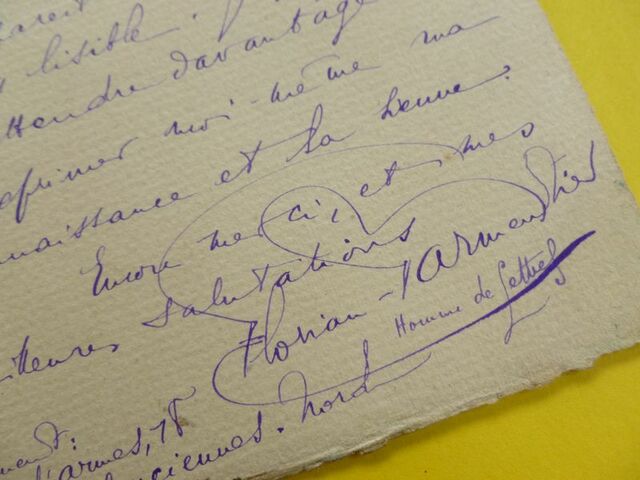 lisible.
attendre davantage
exprimer moi-même ma
naissance et la sienne.
Encore merci, et mes
illeures salutations
Florian-Parmentier
Homme de Lettres
d'armes, 18
enciennes. Nord